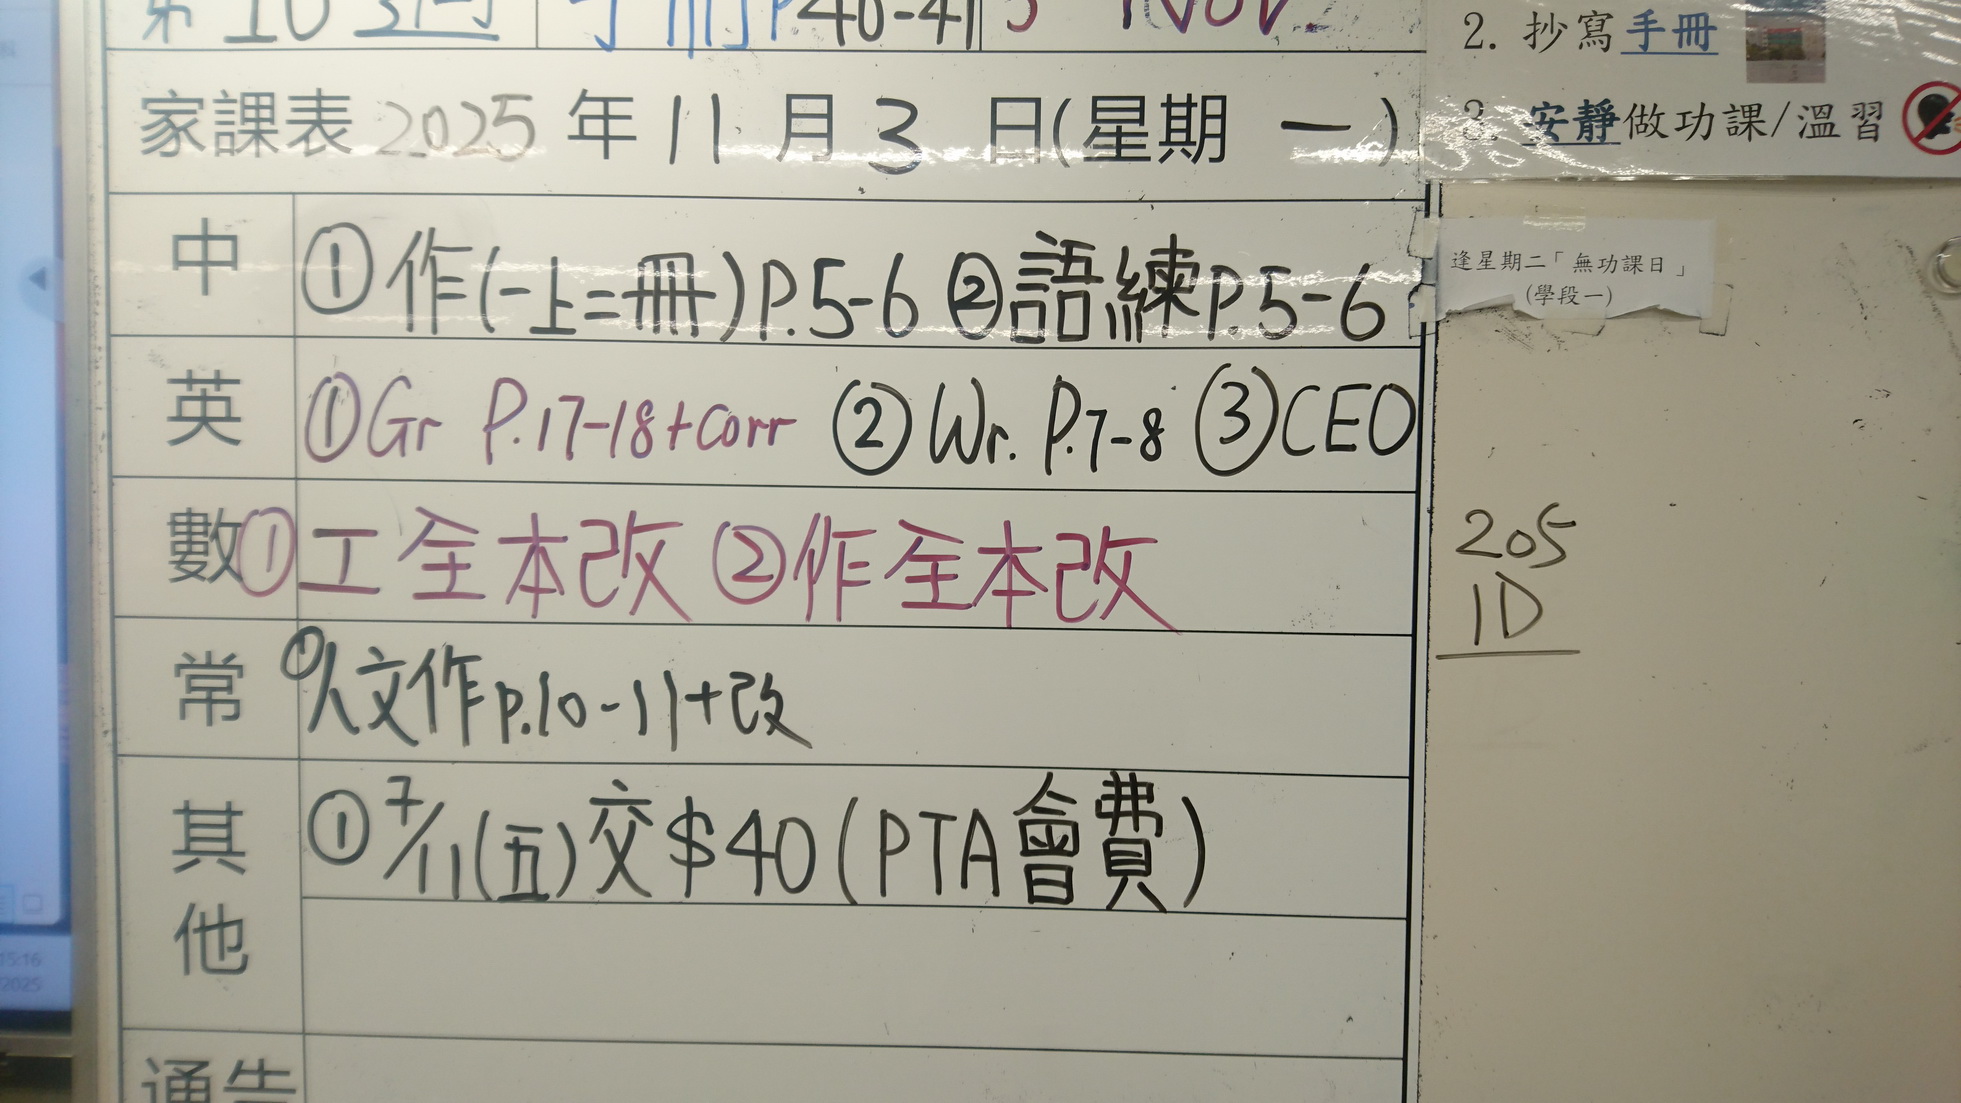 第 10 週 手冊P.40-41 3 Nov.
家課表 2025 年 11 月 3 日(星期 一 )
中 ①作(一上二冊)P.5-6 ②語練P.5-6
英 ①Gr P.17-18+Corr ②Wr. P.7-8 ③CEO
數 ①工全本改 ②作全本改
常 ①人文作p.10-11+改
其他 ①7/11(五)交$40(PTA會費)
通告
2. 抄寫手冊
3. 安靜做功課/溫習
逢星期二「無功課日」
(學段一)
205
1D
15:16
2025